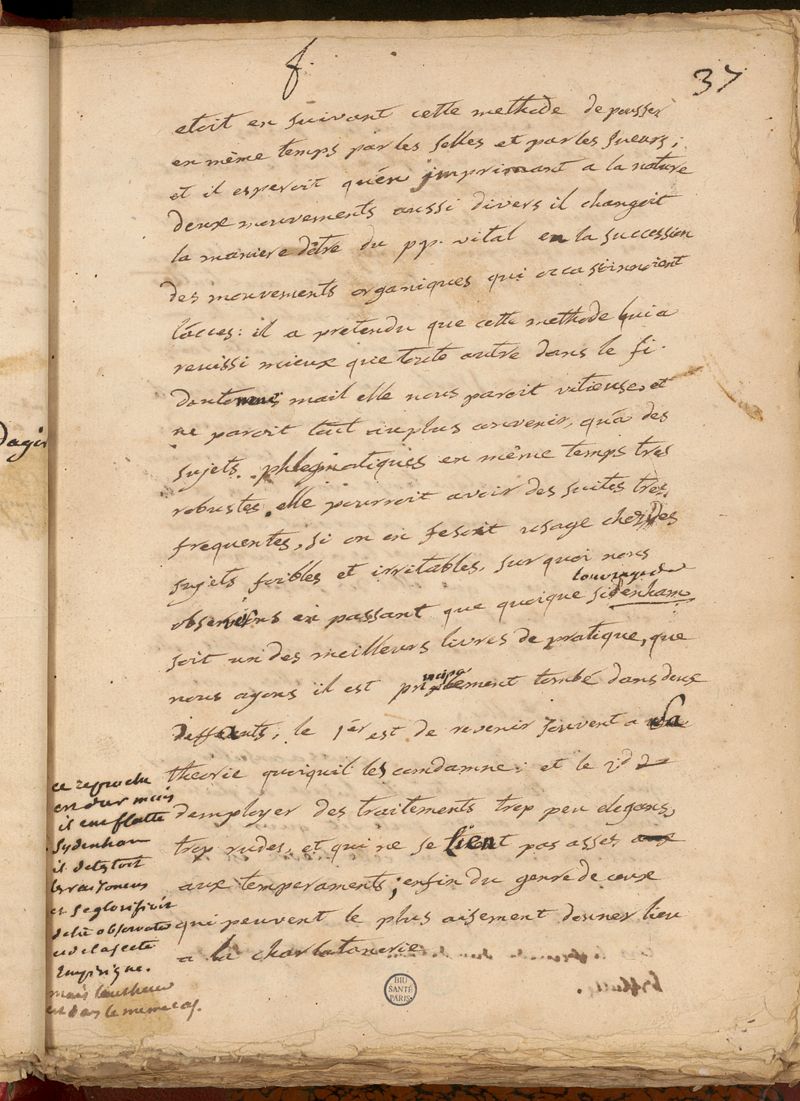 f.
37
etoit en suivant cette methode de pousser
en même temps par les selles et par les sueurs;
et il esperoit qu'en imprimant a la nature
deux mouvements aussi divers il changoit
la maniere d'être du pp. vital en la succession
des mouvements organiques qui occasionnoient
l'acces: il a pretendu que cette methode lui a
reussi mieux que toute autre dans le fi.
mais elle nous paroit vitieuse, et
ne paroit tout au plus convenir, qu'a des
sujets phlegmatiques en même temps tres
robustes, elle pourroit avoir des suites tres
frequentes, si on en fesoit usage chez des
sujets foibles et irritables, sur quoi nous
l'ouvrage de
observons en passant que quoique sidenham
soit un des meilleurs livres de pratique, que
nous ayons il est principalement tombé dans deux
deffauts, le 1er est de revenir souvent a sa
theorie quoiquil les condamne; et le 2d
d'employer des traitements trop peu elegans,
trop rudes, et qui ne se lient pas asses
aux temperaments; enfin du genre de ceux
qui peuvent le plus aisement donner lieu
a la charlatanerie
ce reproche
est dur mais
il en flatte
Sydenham
il detestoit
les raisoneurs
et se glorifioit
d'etre observateur
et de la secte
Empirique.
mais l'autheur
est dans le meme cas.
d'agir
BIU
SANTÉ
PARIS